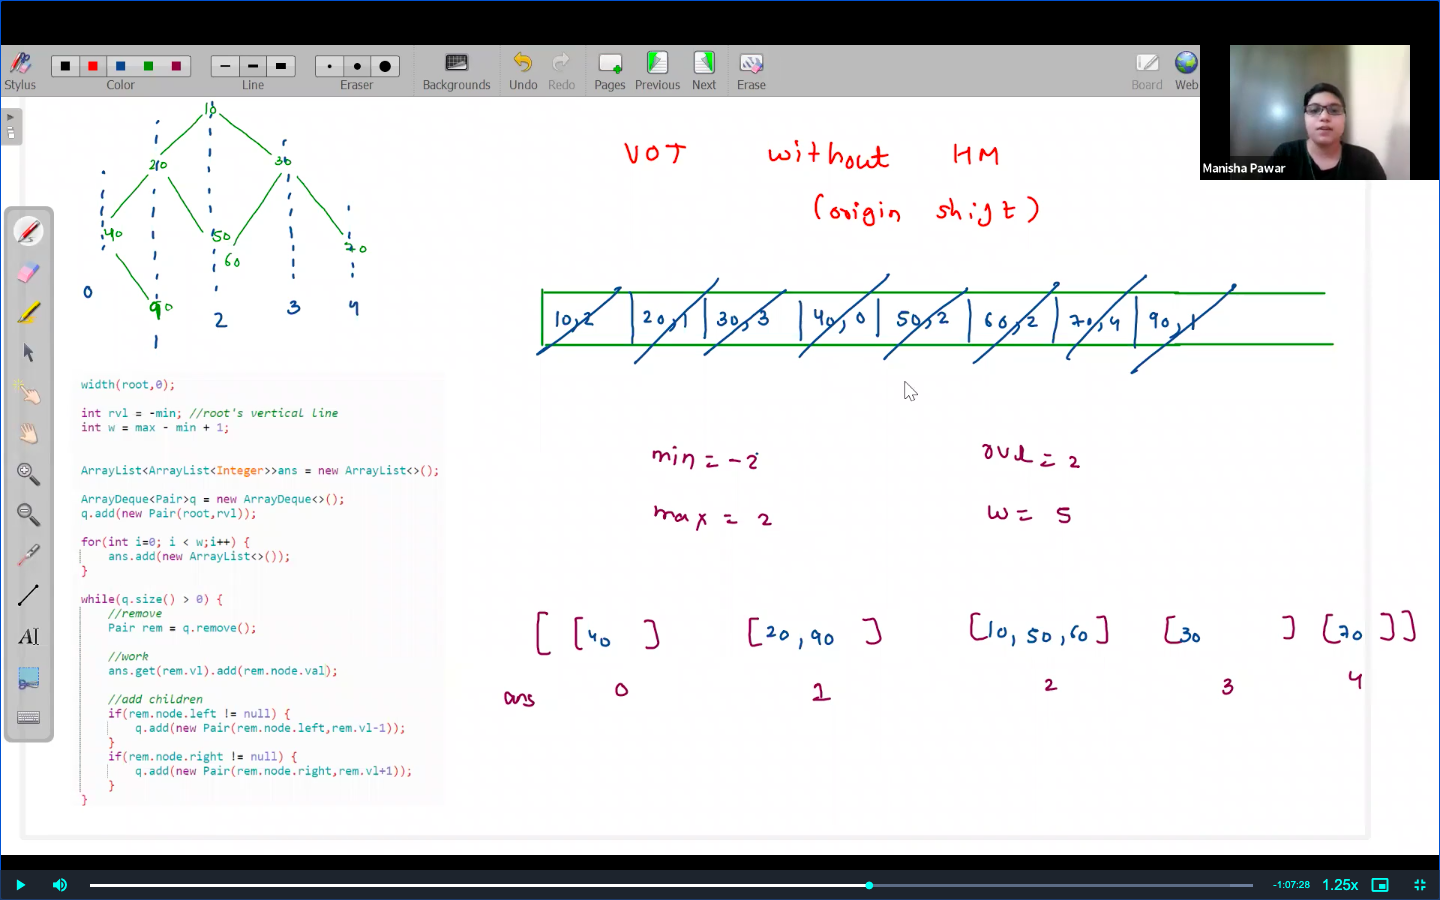 Stylus Color Line Eraser Backgrounds Undo Redo Pages Previous Next Erase Board Web
Manisha Pawar
10
20 30
40 50 60 70
90
0 1 2 3 4
VOT without HM
(origin shift)
10,2 | 20,1 | 30,3 | 40,0 | 50,2 | 60,2 | 70,4 | 90,1
min = -2 rvl = 2
max = 2 w = 5
[ [40 ] [20, 90 ] [10, 50, 60] [30 ] [70 ] ]
ans 0 1 2 3 4
width(root,0);
int rvl = -min; //root's vertical line
int w = max - min + 1;
ArrayList<ArrayList<Integer>>ans = new ArrayList<>();
ArrayDeque<Pair>q = new ArrayDeque<>();
q.add(new Pair(root,rvl));
for(int i=0; i < w;i++) {
ans.add(new ArrayList<>());
}
while(q.size() > 0) {
//remove
Pair rem = q.remove();
//work
ans.get(rem.vl).add(rem.node.val);
//add children
if(rem.node.left != null) {
q.add(new Pair(rem.node.left,rem.vl-1));
}
if(rem.node.right != null) {
q.add(new Pair(rem.node.right,rem.vl+1));
}
}
AI
-1:07:28 1.25x